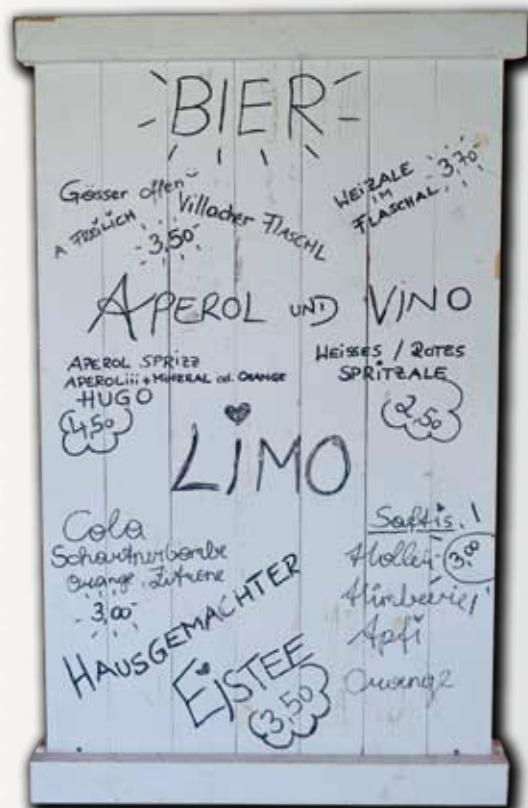 BIER
Gösser offen
A FREILICH
Villacher FLASCHL
3,50
WEIZALE
IM
FLASCHAL
3,70
APEROL UND VINO
APEROL SPRIZZ
APEROLiii + MINERAL od. ORANGE
HUGO
4,50
WEISSES / ROTES
SPRITZALE
2,50
LiMO
Cola
Schartnerbombe
Orange, Zitrone
3,00
Saftis!
Holler
3,00
Himbeere
Apfi
Orange
HAUSGEMACHTER
EiSTEE
3,50